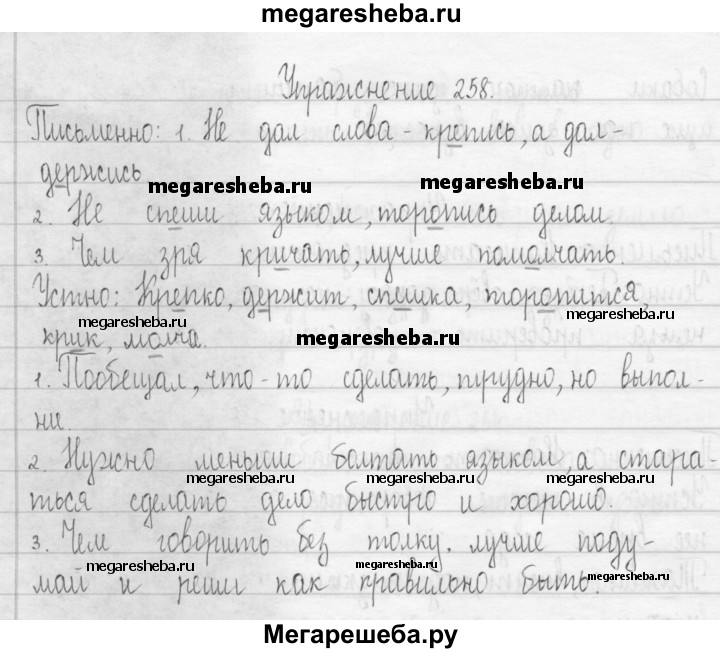 megaresheba.ru
Упражнение 258.
Письменно: 1. Не дал слова - крепись, а дал-
держись
megaresheba.ru
megaresheba.ru
2. Не спеши языком, торопись делом.
3. Чем зря кричать, лучше помолчать.
Устно: Крепко, держит, спешка, торопится,
megaresheba.ru
megaresheba.ru
крик, молча.
megaresheba.ru
1. Пообещал, что-то сделать, трудно, но выпол-
ни.
2. Нужно меньше болтать языком, а стара-
megaresheba.ru
megaresheba.ru
megaresheba.ru
ться сделать дело быстро и хорошо.
3. Чем говорить без толку. лучше поду-
megaresheba.ru
megaresheba.ru
май и реши как правильно быть.
megaresheba.ru
Мегарешеба.ру